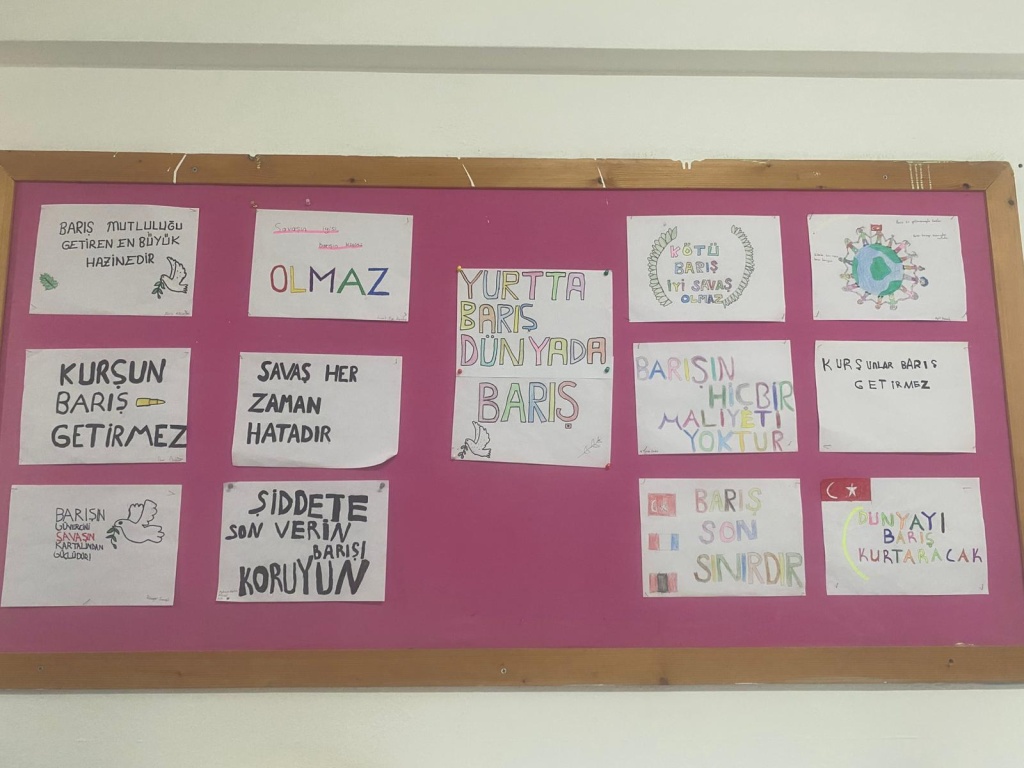 BARIŞ MUTLULUĞU
GETİREN EN BÜYÜK
HAZİNEDİR
Savaşın iyisi
Barışın kötüsü
OLMAZ
YURTTA
BARIŞ
DÜNYADA
BARIŞ
KÖTÜ
BARIŞ
İYİ SAVAŞ
OLMAZ
KURŞUN
BARIŞ
GETİRMEZ
SAVAŞ HER
ZAMAN
HATADIR
BARIŞIN
HİÇBİR
MALİYETİ
YOKTUR
KURŞUNLAR BARIŞ
GETIRMEZ
BARIŞIN
GÜVERCİNİ
SAVAŞIN
KARTALINDAN
GÜÇLÜDÜR!
ŞİDDETE
SON VERİN
BARIŞI
KORUYUN
BARIŞ
SON
SINIRDIR
DÜNYAYI
BARIŞ
KURTARACAK